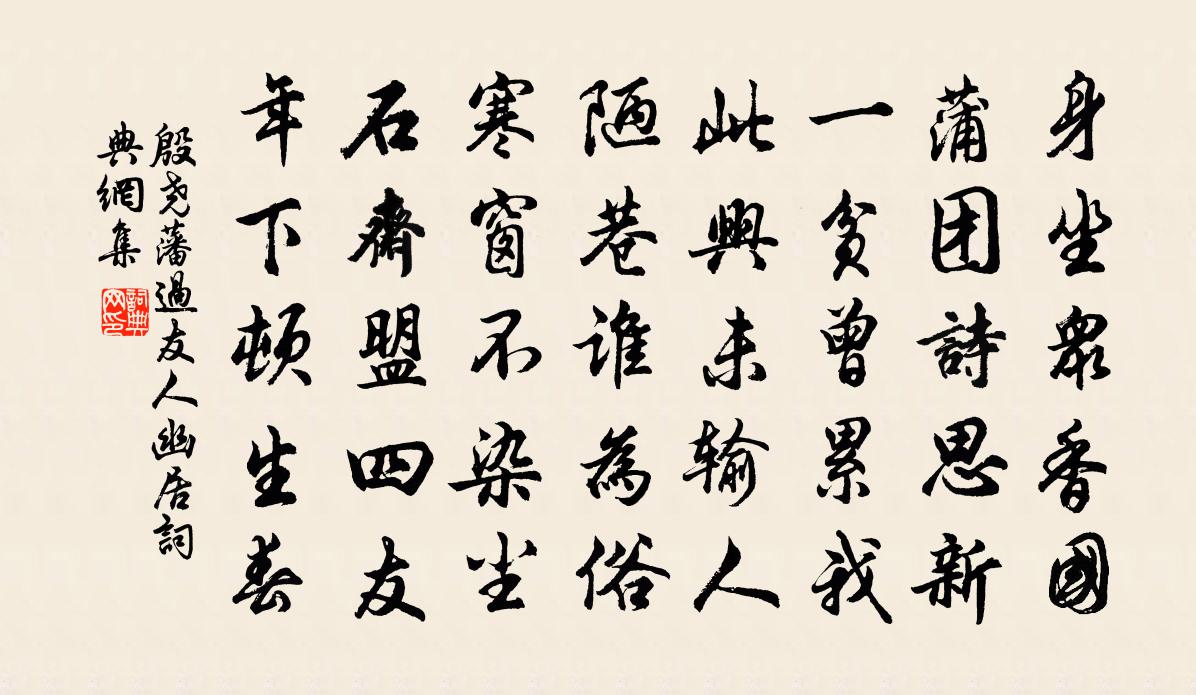 身坐眾香國
蒲团詩思新
一貧曾累我
此興未输人
陋巷谁為俗
寒窗不染尘
石齋盟四友
年下頓生春
殷尧藩過友人幽居詞
典網集
詞典
网印